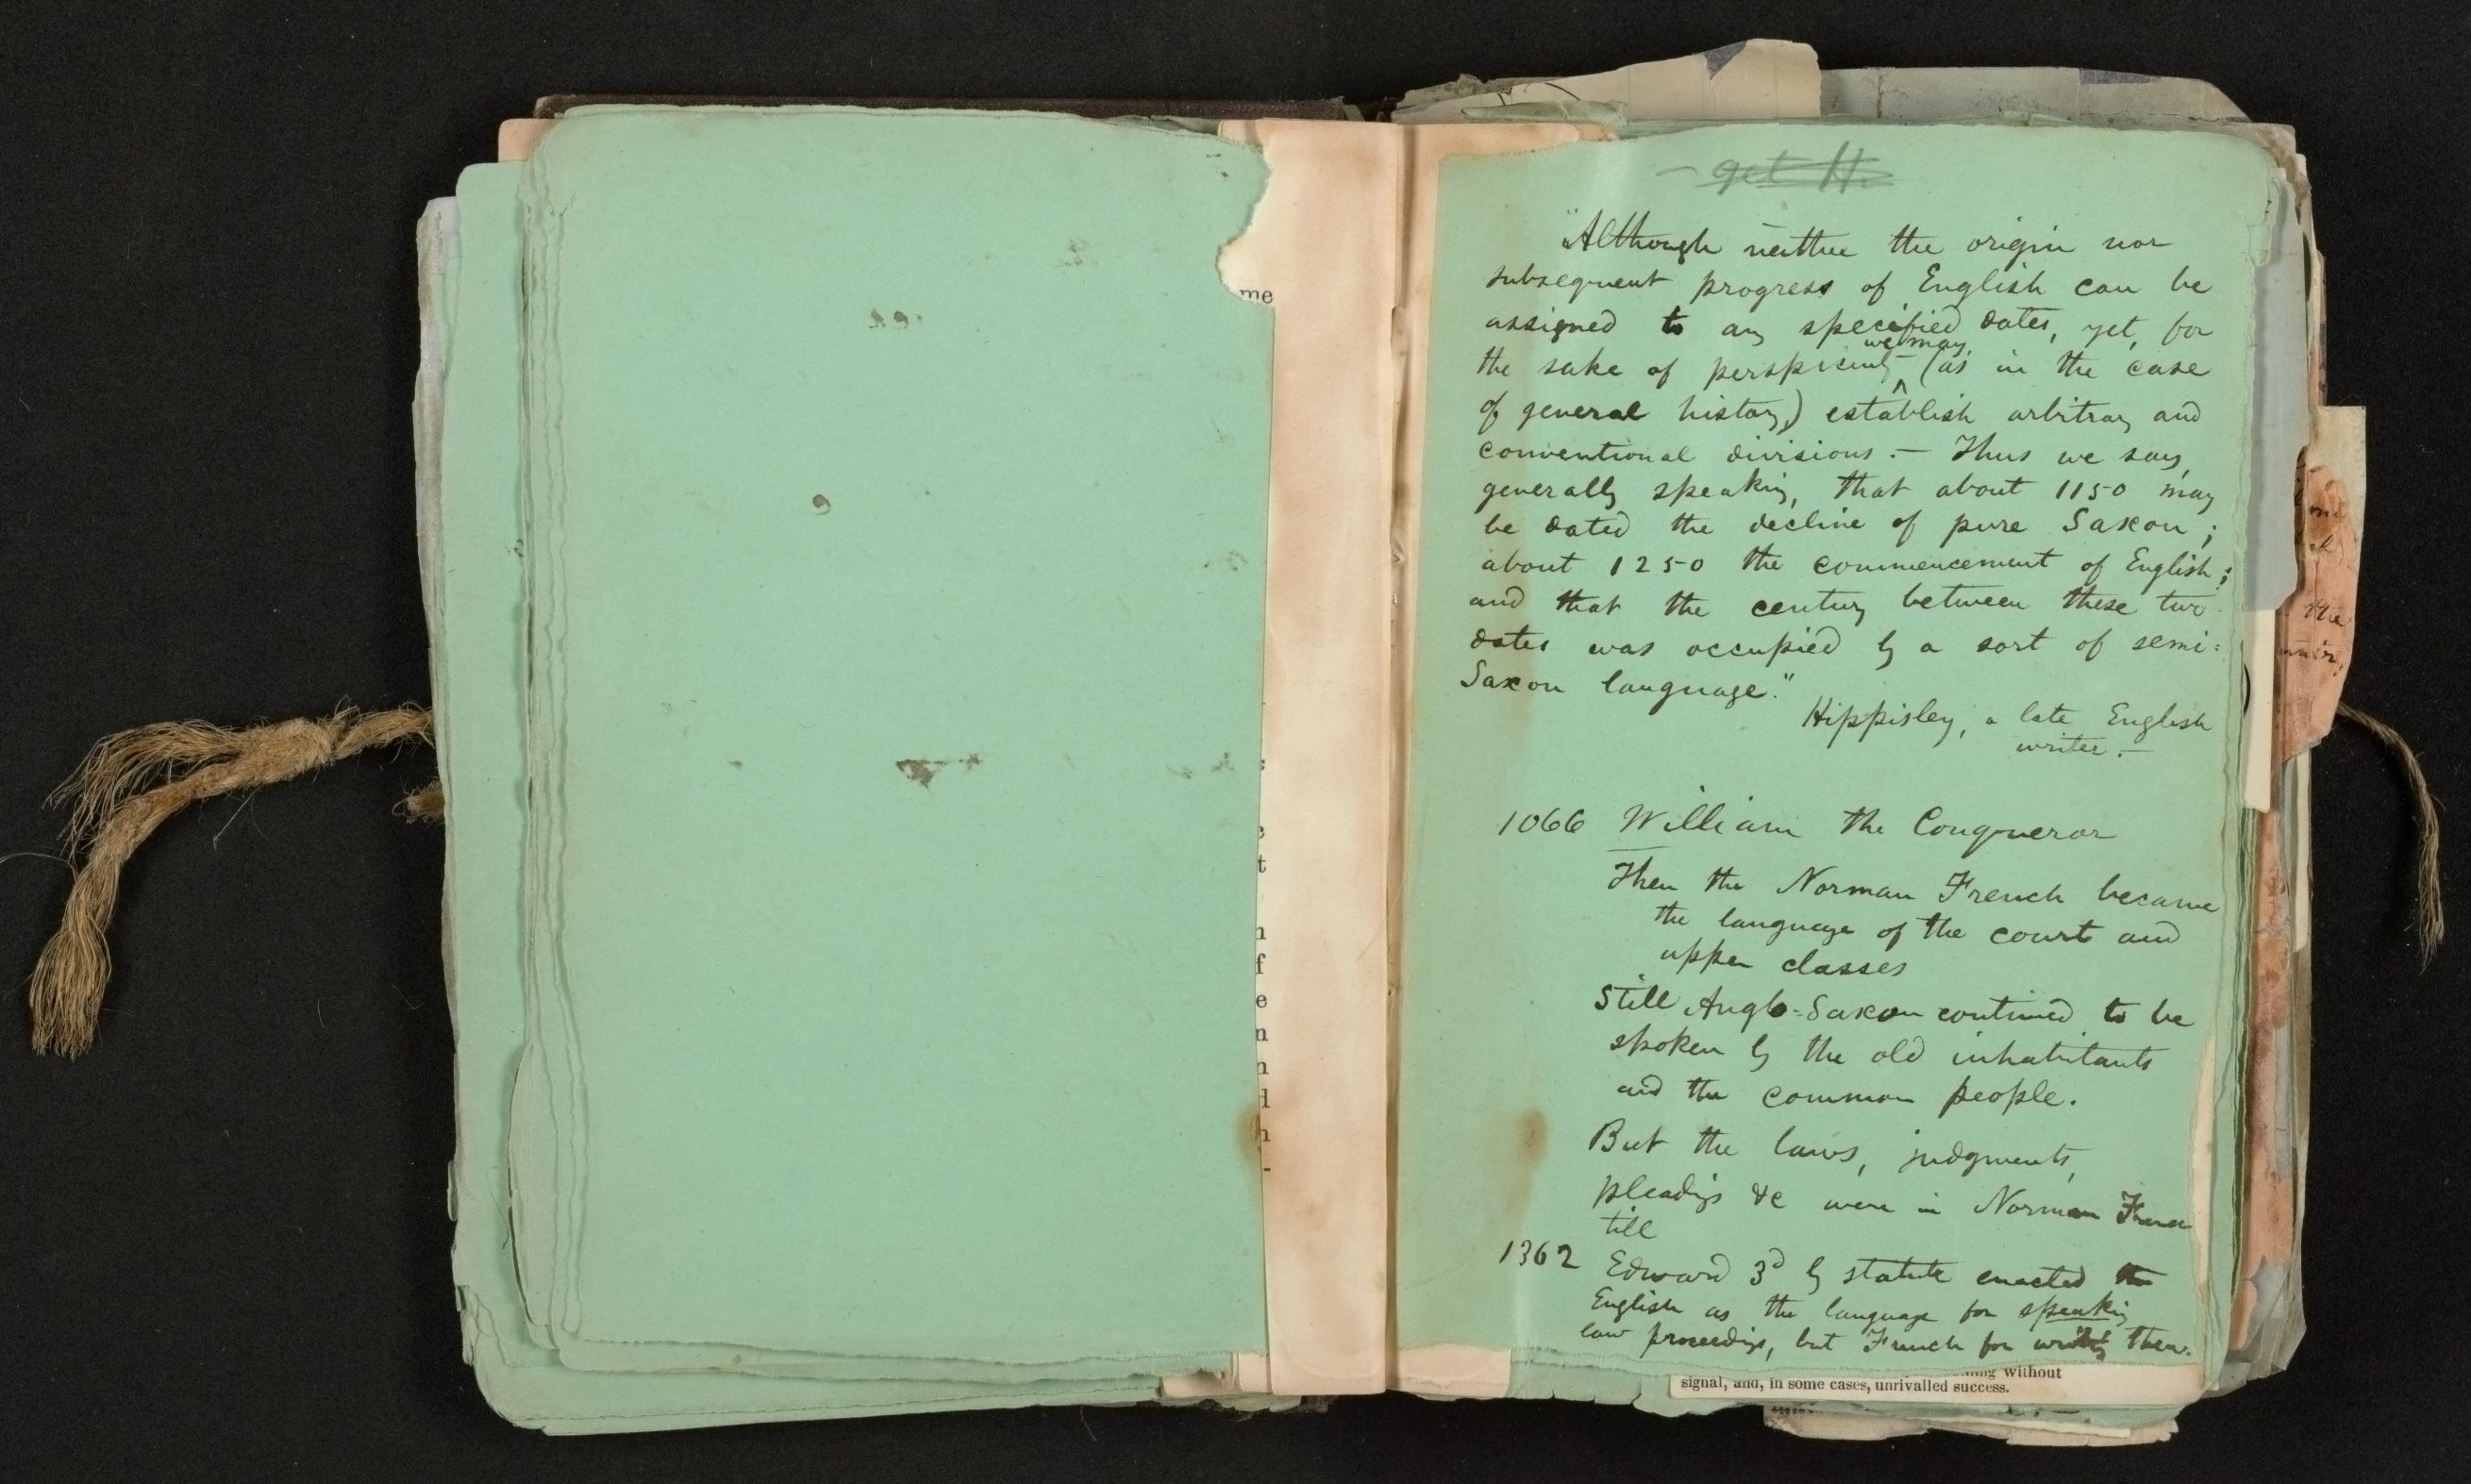 me
- get H.
"Although neither the origin nor
subsequent progress of English can be
assigned to any specified dates, yet, for
the sake of perspicuity we may (as in the case
of general history,) establish arbitrary and
conventional divisions. — Thus we say,
generally speaking, that about 1150 may
be dated the decline of pure Saxon;
about 1250 the commencement of English;
and that the century between these two
dates was occupied by a sort of semi=
Saxon language."
Hippisley, a late English
writer. —
1066 William the Conqueror
Then the Norman French became
the language of the court and
upper classes
Still Anglo-Saxon continued to be
spoken by the old inhabitants
and the common people.
But the laws, judgments,
pleadings &c were in Norman French
till
1362 Edward 3d by statute enacted the
English as the language for speaking
law proceedings, but French for writing them.
without
signal, and, in some cases, unrivalled success.
the